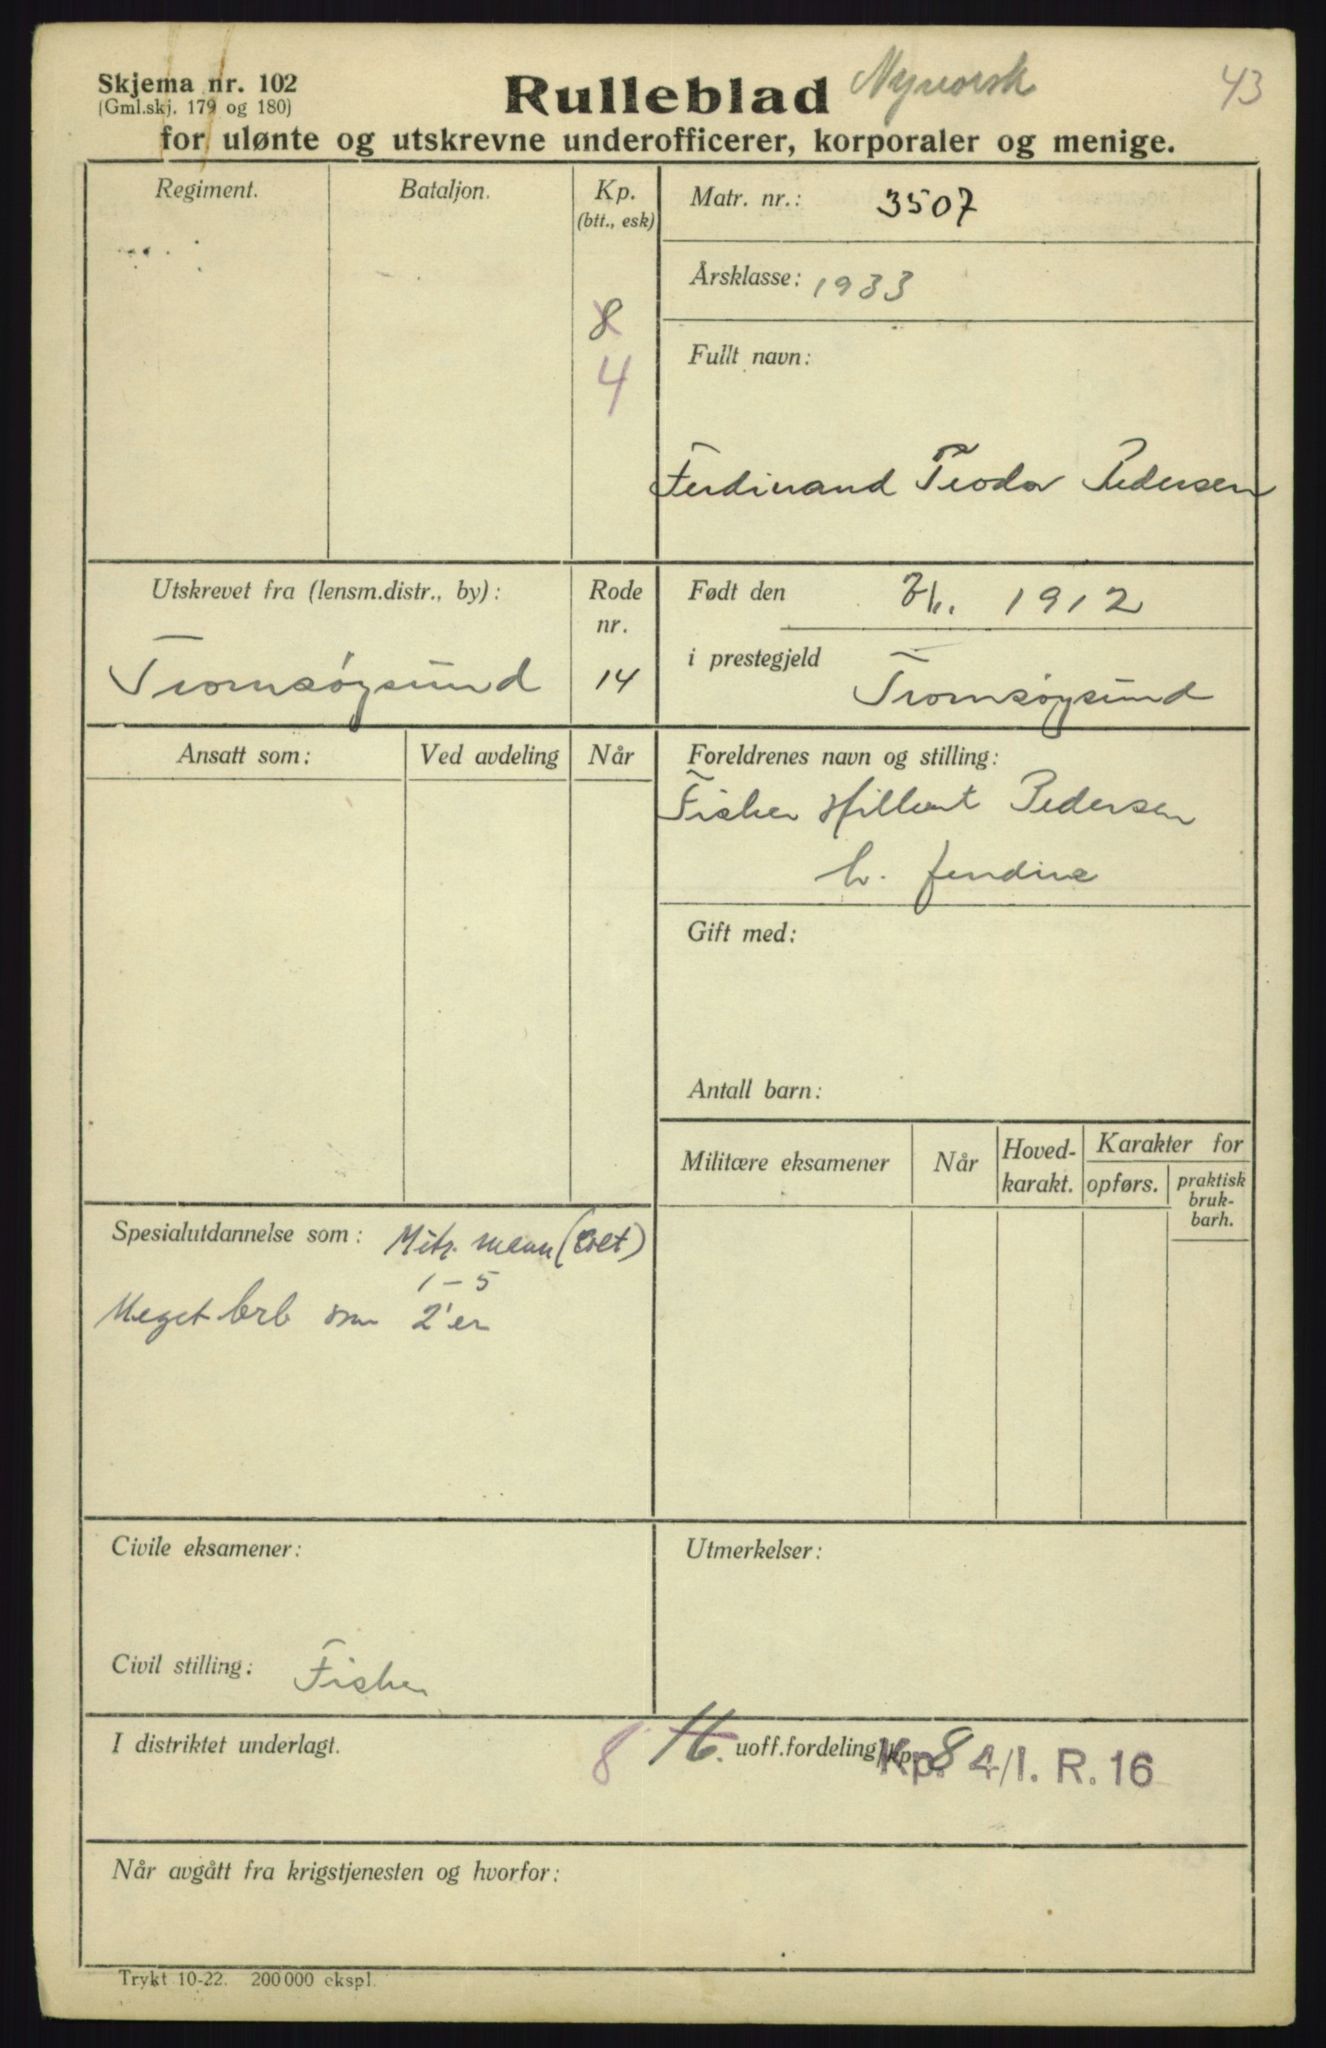 Skjema nr. 102
(Gml.skj. 179 og 180)
Rulleblad Nynorsk
43
for ulønte og utskrevne underofficerer, korporaler og menige.
Regiment.
Bataljon.
Kp.
(btt., esk)
8
4
Matr. nr.: 3507
Årsklasse: 1933
Fullt navn:
Ferdinand Teodor Pedersen
Utskrevet fra (lensm.distr., by):
Tromsøysund
Rode
nr.
14
Født den 1912
i prestegjeld Tromsøysund
Ansatt som:
Ved avdeling
Når
Foreldrenes navn og stilling:
Fisker Hilbert Pedersen
h.
Gift med:
Antall barn:
Militære eksamener
Når
Hoved-
karakt.
Karakter for
opførs.
praktisk
bruk-
barh.
Spesialutdannelse som: Mitr. mann
1-5
Meget brb som 2'er
Civile eksamener:
Civil stilling: Fisker
Utmerkelser:
I distriktet underlagt.
8 16. uoff.fordeling/kp. 8
Kp. 4/I. R. 16
Når avgått fra krigstjenesten og hvorfor:
Trykt 10-22. 200 000 ekspl.